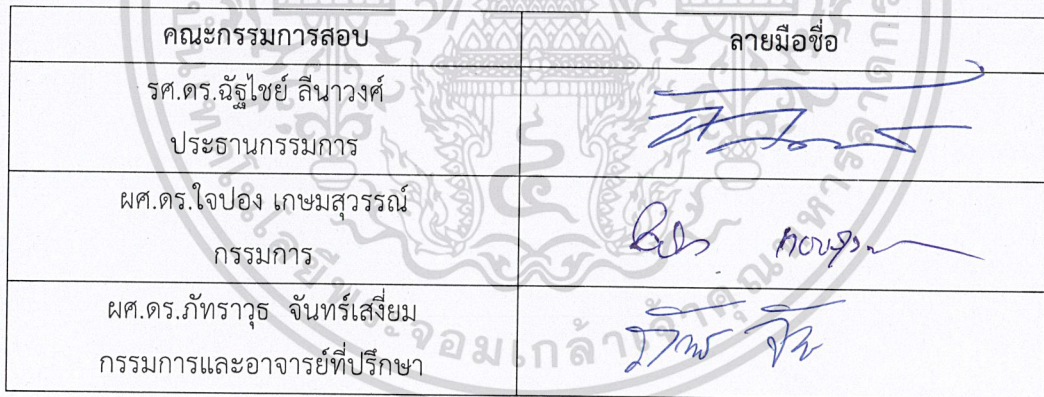 คณะกรรมการสอบ ลายมือชื่อ
รศ.ดร.ฉัฐไชย์ ลีนาวงศ์
ประธานกรรมการ
ผศ.ดร.ใจปอง เกษมสุวรรณ์
กรรมการ
ผศ.ดร.ภัทราวุธ จันทร์เสงี่ยม
กรรมการและอาจารย์ที่ปรึกษา